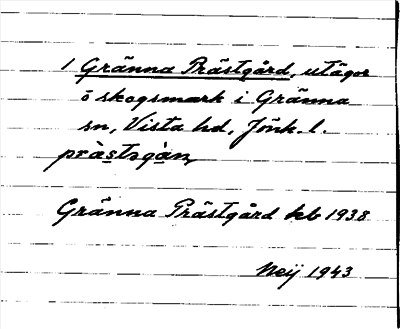 1 Gränna Prästgård, utägor
o skogsmark i Gränna
sn, Vista hd, Jönk. l.
prästsgàn,
Gränna Prästgård kb 1938
Neij 1943